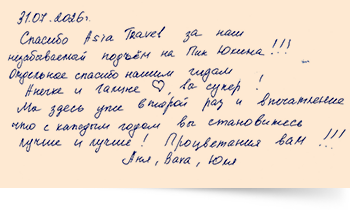 31.07.2026г.
Спасибо Asia Travel за наш
незабываемый подъём на Пик Юхина!!!
Отдельное спасибо нашим гидам
Анечке и Галине ♡, вы супер!
Мы здесь уже второй раз и впечатление
что с каждым годом вы становитесь
лучше и лучше! Процветания вам!!!
Аня, Ваха, Юля